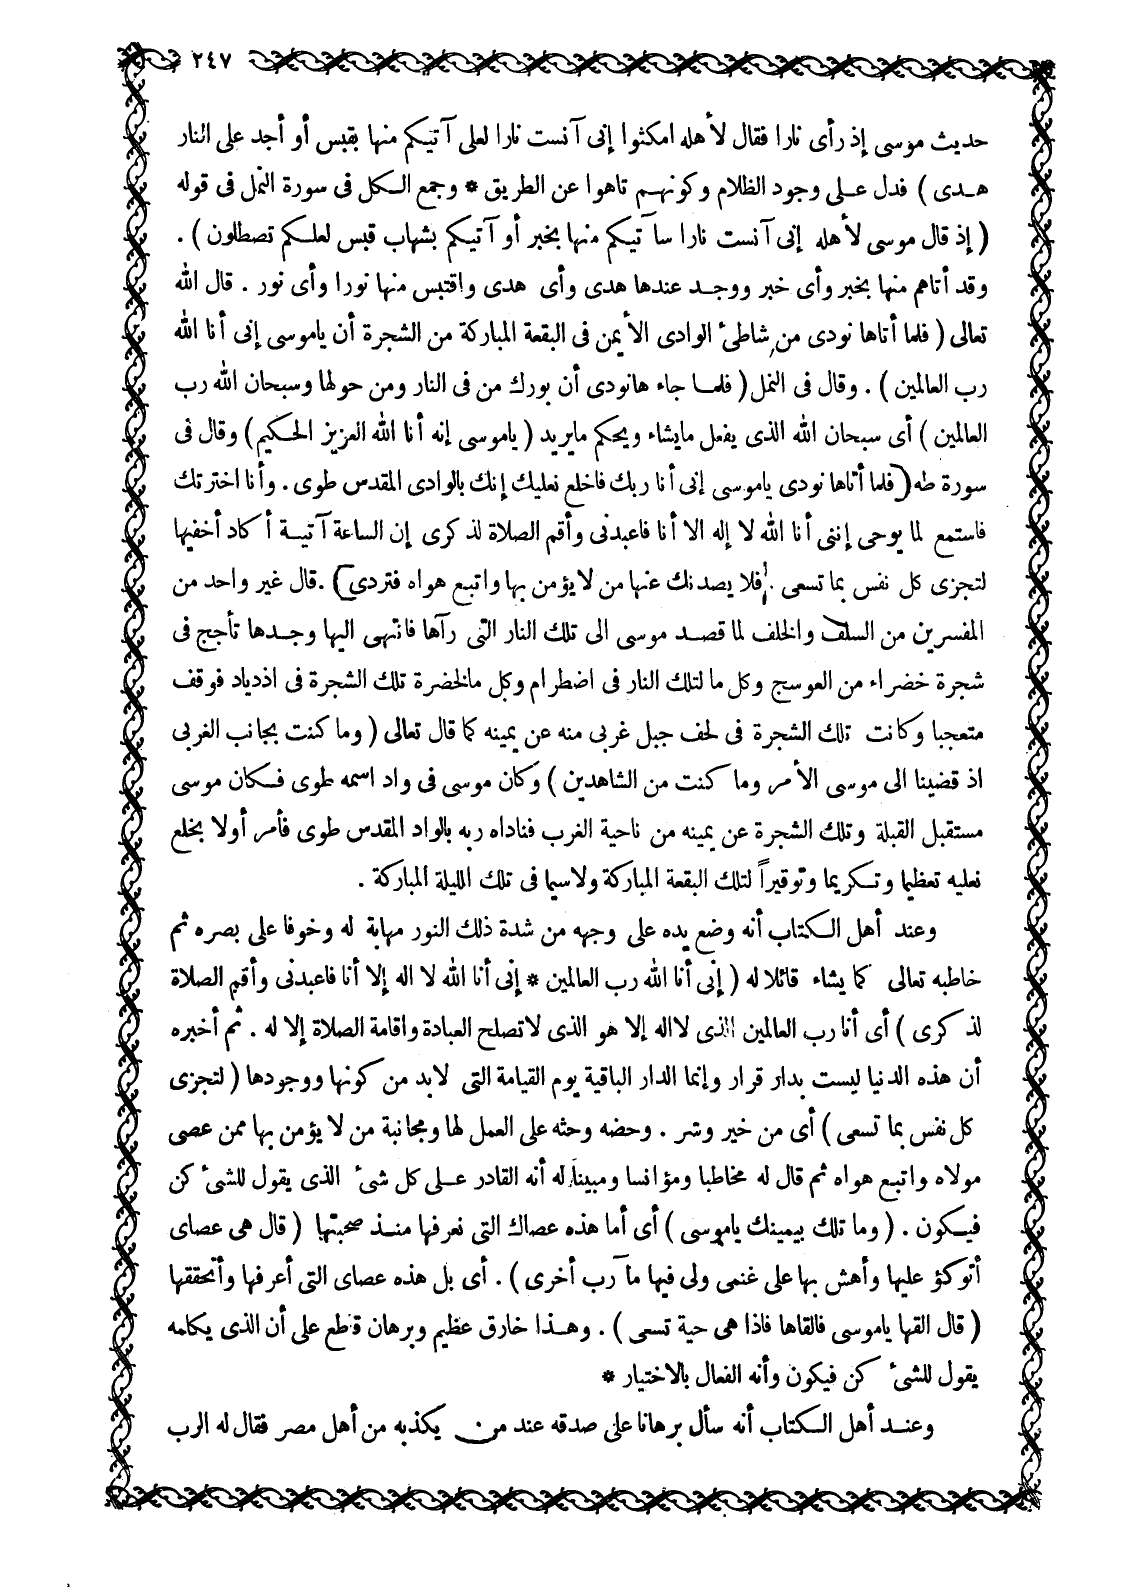 ٢٤٧
حديث موسى إذ رأى نارا فقال لأهله امكثوا إنى آنست نارا لعلى آتيكم منها بقبس أو أجد على النار
هدى ) فدل على وجود الظلام وكونهم تاهوا عن الطريق * وجمع الكل فى سورة النمل فى قوله
( إذ قال موسى لأهله إنى آنست نارا سآتيكم منها بخبر أو آتيكم بشهاب قبس لعلكم تصطلون ) .
وقد أتاهم منها بخبر وأى خبر ووجد عندها هدى وأى هدى واقتبس منها نورا وأى نور . قال الله
تعالى ( فلما أتاها نودى من شاطئ الوادى الأيمن فى البقعة المباركة من الشجرة أن ياموسى إنى أنا الله
رب العالمين ) . وقال فى النمل ( فلما جاء هانودى أن بورك من فى النار ومن حولها وسبحان الله رب
العالمين ) أى سبحان الله الذى يفعل مايشاء ويحكم مايريد ( ياموسى إنه أنا الله العزيز الحكيم ) وقال فى
سورة طه ( فلما أتاها نودى ياموسى إنى أنا ربك فاخلع نعليك إنك بالوادى المقدس طوى . وأنا اخترتك
فاستمع لما يوحى إننى أنا الله لا إله الا أنا فاعبدنى وأقم الصلاة لذكرى إن الساعة آتية أكاد أخفيها
لتجزى كل نفس بما تسعى . فلا يصدنك عنها من لايؤمن بها واتبع هواه فتردى ) . قال غير واحد من
المفسرين من السلف والخلف لما قصد موسى الى تلك النار التى رآها فانتهى اليها وجدها تأجج فى
شجرة خضراء من العوسج وكل ما لتلك النار فى اضطرام وكل مالخضرة تلك الشجرة فى اذدياد فوقف
متعجبا وكانت تلك الشجرة فى لحف جبل غربى منه عن يمينه كما قال تعالى ( وما كنت بجانب الغربى
اذ قضينا الى موسى الأمر وما كنت من الشاهدين ) وكان موسى فى واد اسمه طوى فكان موسى
مستقبل القبلة وتلك الشجرة عن يمينه من ناحية الغرب فناداه ربه بالواد المقدس طوى فأمر أولا بخلع
نعليه تعظيما وتكريما وتوقيراً لتلك البقعة المباركة ولاسيما فى تلك الليلة المباركة .
وعند أهل الكتاب أنه وضع يده على وجهه من شدة ذلك النور مهابة له وخوفا على بصره ثم
خاطبه تعالى كما يشاء قائلا له ( إنى أنا الله رب العالمين * إنى أنا الله لا اله إلا أنا فاعبدنى وأقم الصلاة
لذكرى ) أى أنا رب العالمين الذى لااله إلا هو الذى لاتصلح العبادة واقامة الصلاة إلا له . ثم أخبره
أن هذه الدنيا ليست بدار قرار وإنما الدار الباقية يوم القيامة التى لابد من كونها ووجودها ( لتجزى
كل نفس بما تسعى ) أى من خير وشر . وحضه وحثه على العمل لها ومجانبة من لا يؤمن بها ممن عصى
مولاه واتبع هواه ثم قال له مخاطبا ومؤانسا ومبينا له أنه القادر على كل شئ الذى يقول للشئ كن
فيكون . ( وما تلك بيمينك ياموسى ) أى أما هذه عصاك التى نعرفها منذ صحبتها ( قال هى عصاى
أتوكؤ عليها وأهش بها على غنمى ولى فيها مآرب أخرى ) . أى بل هذه عصاى التى أعرفها وأتحققها
( قال القها ياموسى فالقاها فاذا هى حية تسعى ) . وهذا خارق عظيم وبرهان قاطع على أن الذى يكلمه
يقول للشئ كن فيكون وأنه الفعال بالاختيار *
وعند أهل الكتاب أنه سأل برهانا على صدقه عند من يكذبه من أهل مصر فقال له الرب